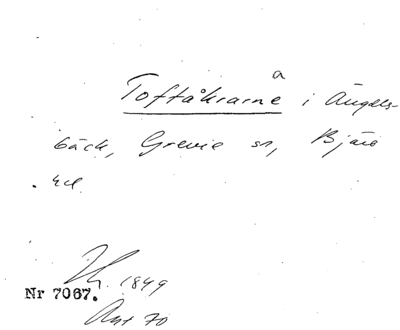 Toftåkrarna i Ängels-
bäck, Grevie sn, Bjäre
hd
1849
Nr 7067.
Ant 70